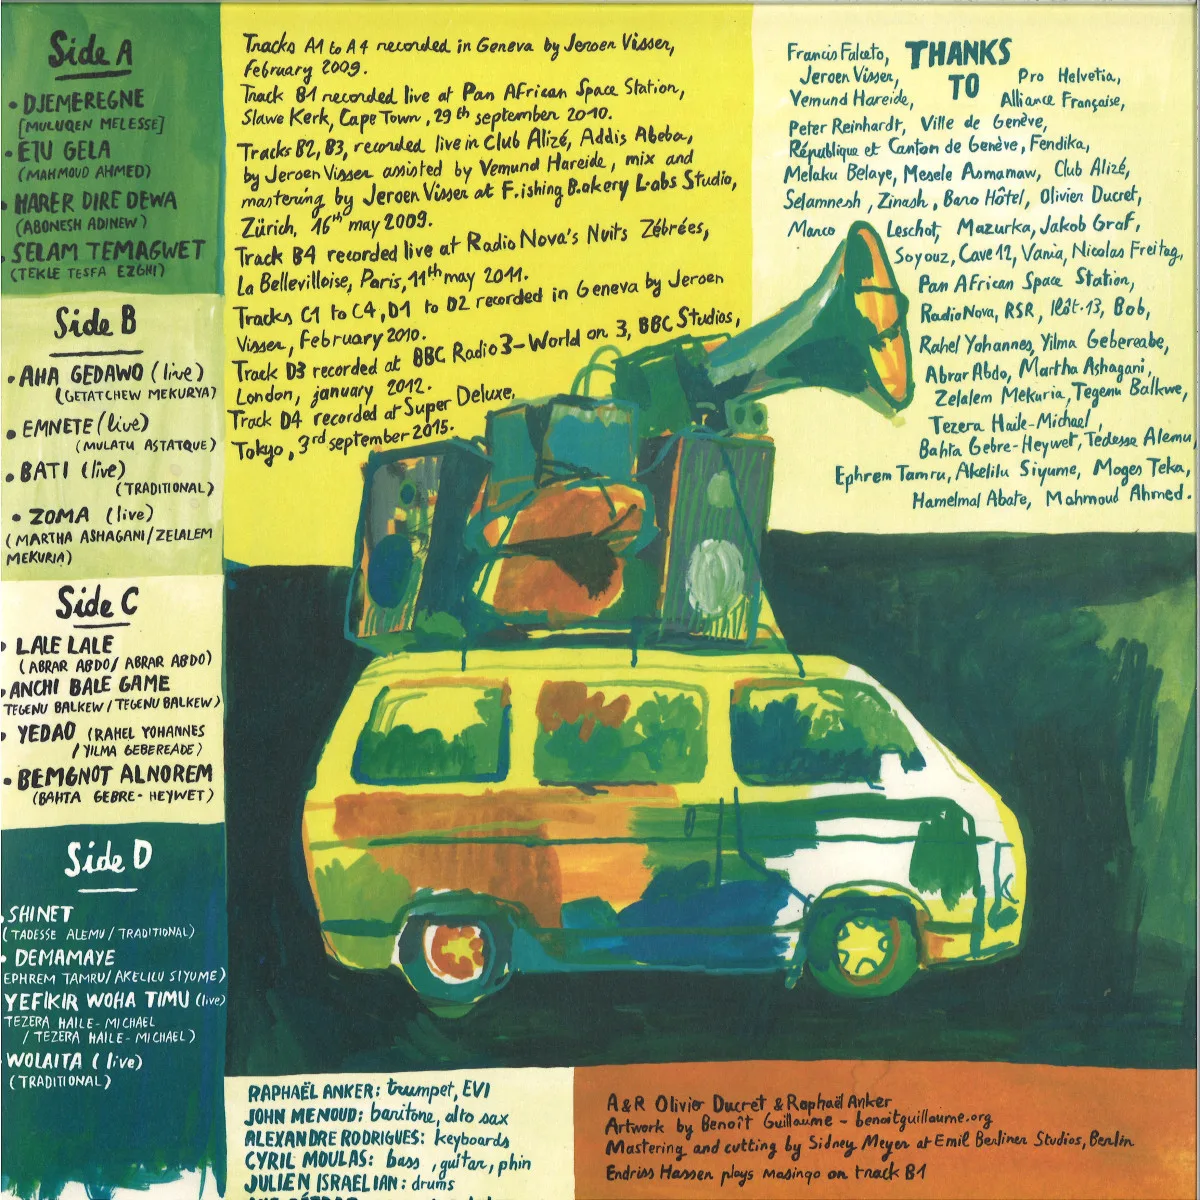 Side A
• DJEMEREGNE
[MULUQEN MELESSE]
• ETU GELA
(MAHMOUD AHMED)
• HARER DIRE DEWA
(ABONESH ADINEW)
• SELAM TEMAGWET
(TEKLE TESFA EZGHI)
Side B
• AHA GEDAWO (live)
(GETATCHEW MEKURYA)
• EMNETE (live)
(MULATU ASTATQUE)
• BATI (live)
(TRADITIONAL)
• ZOMA (live)
(MARTHA ASHAGANI/ZELALEM
MEKURIA)
Side C
• LALE LALE
(ABRAR ABDO/ ABRAR ABDO)
• ANCHI BALE GAME
TEGENU BALKEW / TEGENU BALKEW)
• YEDAO (RAHEL YOHANNES
/ YILMA GEBEREADE)
• BEMGNOT ALNOREM
(BAHTA GEBRE-HEYWET)
Side D
• SHINET
(TADESSE ALEMU / TRADITIONAL)
• DEMAMAYE
EPHREM TAMRU/ AKELILU SIYUME)
YEFIKIR WOHA TIMU (live)
TEZERA HAILE-MICHAEL
/ TEZERA HAILE-MICHAEL)
WOLAITA (live)
(TRADITIONAL)
Tracks A1 to A4 recorded in Geneva by Jeroen Visser,
February 2009.
Track B1 recorded live at Pan African Space Station,
Slawe Kerk, Cape Town, 29th september 2010.
Tracks B2, B3, recorded live in Club Alizé, Addis Abeba,
by Jeroen Visser assisted by Vemund Hareide, mix and
mastering by Jeroen Visser at F.ishing B.akery L.abs Studio,
Zürich, 16th may 2009.
Track B4 recorded live at Radio Nova's Nuits Zébrées,
La Bellevilloise, Paris, 11th may 2011.
Tracks C1 to C4, D1 to D2 recorded in Geneva by Jeroen
Visser, February 2010.
Track D3 recorded at BBC Radio 3-World on 3, BBC Studios,
London, january 2012.
Track D4 recorded at Super Deluxe,
Tokyo, 3rd september 2015.
THANKS
TO
Francis Falceto,
Jeroen Visser, Pro Helvetia,
Vemund Hareide, Alliance Française,
Peter Reinhardt, Ville de Genève,
République et Canton de Genève, Fendika,
Melaku Belaye, Mesele Asmamaw, Club Alizé,
Selamnesh, Zinash, Baro Hôtel, Olivier Ducret,
Marco Leschot, Mazurka, Jakob Graf,
Soyouz, Cave 12, Vania, Nicolas Freitag,
Pan African Space Station,
Radio Nova, RSR, Ilôt-13, Bob,
Rahel Yohannes, Yilma Gebereabe,
Abrar Abdo, Martha Ashagani,
Zelalem Mekuria, Tegenu Balkwe,
Tezera Haile-Michael,
Bahta Gebre-Heywet, Tedesse Alemu
Ephrem Tamru, Akelilu Siyume, Moges Teka,
Hamelmal Abate, Mahmoud Ahmed.
RAPHAËL ANKER: trumpet, EVI
JOHN MENOUD: baritone, alto sax
ALEXANDRE RODRIGUES: keyboards
CYRIL MOULAS: bass, guitar, phin
JULIEN ISRAELIAN: drums
A&R Olivier Ducret & Raphaël Anker
Artwork by Benoît Guillaume - benoitguillaume.org
Mastering and cutting by Sidney Meyer at Emil Berliner Studios, Berlin
Endriss Hassen plays masinqo on track B1